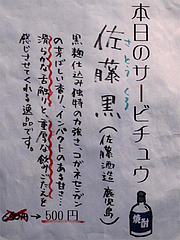 本日のサービチュウ
さとう くろ
佐藤 黒(佐藤酒造 鹿児島)
黒麹仕込み独特の力強さ、コガネセンガン
の芳ばしい香り、インパクトのある甘さ…
滑らかな舌触りで重厚な飲みごたえを
感じさせてくれる逸品です。
→500円
焼酎